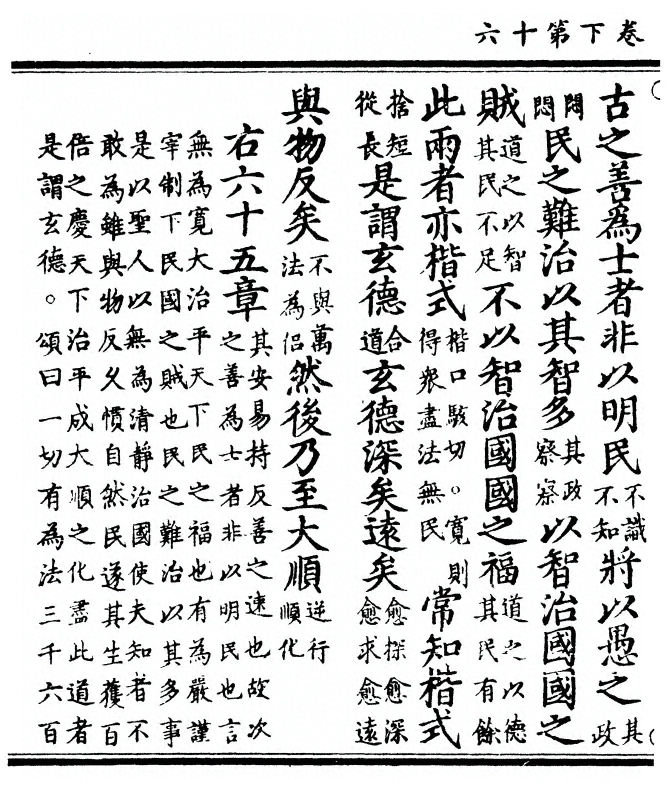 卷下第十六
古之善爲士者非以明民不識不知將以愚之其政
悶悶民之難治以其智多其政察察以智治國國之
賊道之以智其民不足不以智治國國之福道之以德其民有餘
此兩者亦楷式楷口駭切。寬則得衆盡法無民常知楷式
捨短從長是謂玄德合道玄德深矣遠矣愈探愈深愈求愈遠
與物反矣不與萬法為侶然後乃至大順逆行順化
右六十五章其安易持反善之速也故次之善為士者非以明民也言
無為寬大治平天下民之福也有為嚴謹
宰制下民國之賊也民之難治以其多事
是以聖人以無為清靜治國使夫知者不
敢為雖與物反乆慣自然民遂其生獲百
倍之慶天下治平成大順之化盡此道者
是謂玄德。頌曰一切有為法三千六百